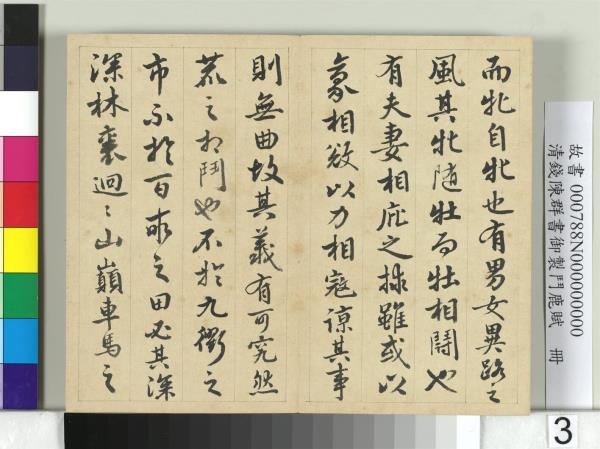 而牝自牝也有男女異路之
風其牝隨牡而牡相鬪也
有夫妻相庇之操雖或以
氣相敵以力相寇諒其事
則無曲故其義有可究然
鹿之相鬥也不於九衢之
市不於百畝之田必其深
深林窮迴之山巔車馬之
故書 000788N000000000
清錢陳群書御製鬥鹿賦 冊
3